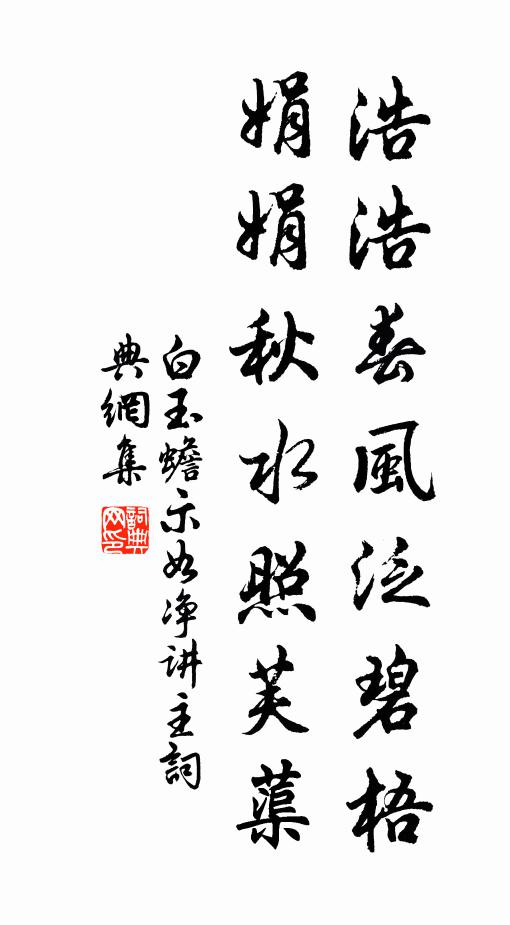 浩浩春風泛碧梧
娟娟秋水照芙蕖
白玉蟾示如净讲主詞
典網集
詞典
网印